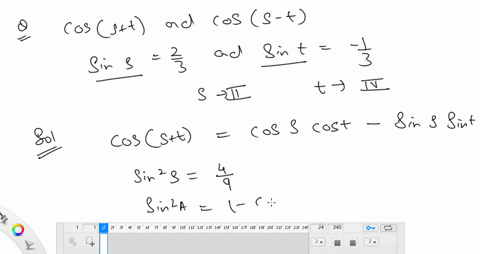 Q cos (s+t) ad cos (s-t)
Sin s = 2/3 ad Sin t = -1/3
s → II t → IV
Sol cos (s+t) = cos s cost - Sin s Sint
Sin² s = 4/9
Sin²A = 1 - c
1 1 1F 2F 3F 4F 5F 6F 7F 8F 9F 10F 11F 12F 13F 14F 15F 16F 17F 18F 19F 20F 21F 22F 23F 24F 24 240